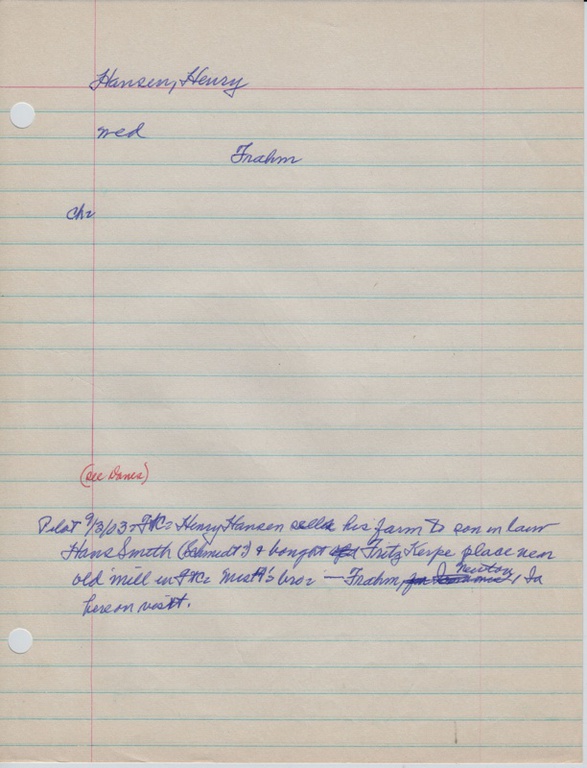 Hansen, Henry
wed
Frahm
Ch:
(see Danes)
Pilot 9/3/03 - Henry Hansen his farm to son in law
Hans Smith (Schmidt?) & bought Fritz Kerpe place near
old mill in bro: — Frahm, Newton, Ia
here on visit.